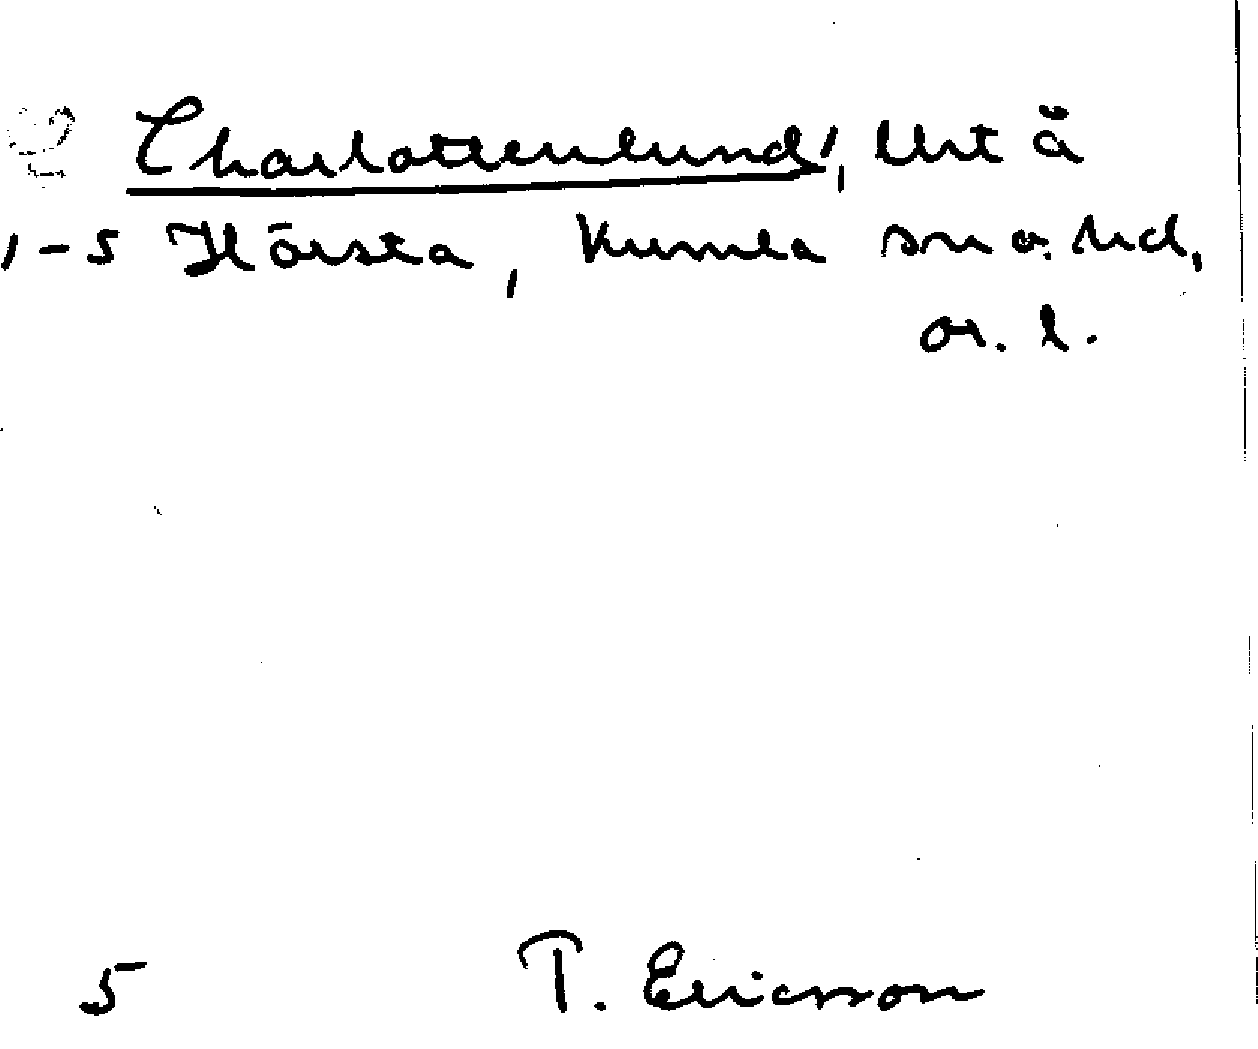 Charlottenlund, Uht å
1-5 Hörsta, Kumla sn o. hd,
ör. l.
5 T. Ericsson